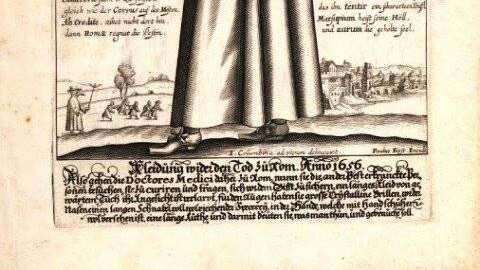 gleich wie der Corvus auf der Misten.
Ah Credite, zihet nicht dort hin
dann Romæ regnat die Pestin.
das ihn tentir ein schwartze Teufl.
Marsupium heist seine Höll,
und aurum die geholte seel.
I. Columbina, ad vivum delineavit.
Paulus Fürst Excud.
Kleidung wider den Tod zu Rom. Anno 1656.
Also gehen die Doctores Medici daher zu Rom, wann sie die an der Pest erkranckte Per,
sohnen besuchen, sie zu curiren und tragen, sich vor dem Gifft zu sichern, ein langes Kleid von ge,
wäxtem Tuch ihr Angesicht ist verlarvt, für den Augen haben sie grosse Crystalline Brillen, wider
Nasen einen langen Schnabel voll wolriechender Specereÿ, in der Hände, welche mit Handschuhen
wol versehen ist, eine lange Ruthe und darmit deuten sie, was man thun, und gebrauchen soll.